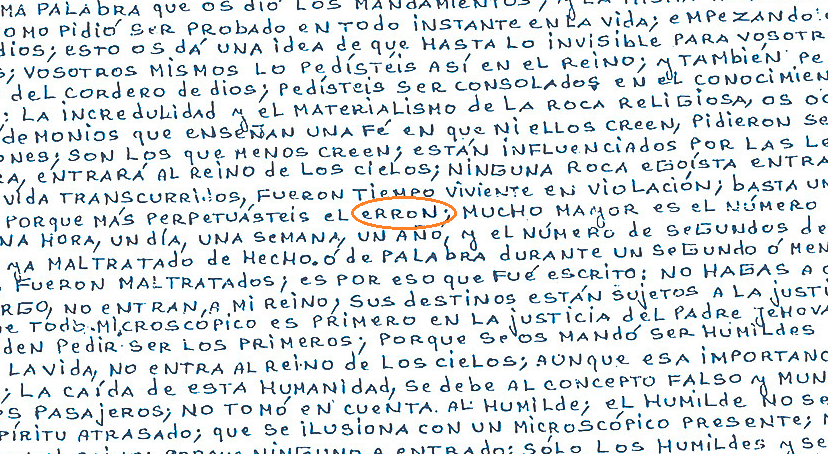 MA PALABRA y QUE OS DIÓ LOS MANDAMIENTOS; y LA MISMA
OMO PIDIÓ SER PROBADO EN TODO INSTANTE EN LA VIDA; EMPEZANDO
DIOS; ESTO OS DÁ UNA IDEA DE QUE HASTA LO INVISIBLE PARA VOSOTR
S; VOSOTROS MISMOS LO PEDÍSTEIS ASÍ EN EL REINO; y TAMBIÉN PE
DEL CORDERO DE DIOS; PEDÍSTEIS SER CONSOLADOS EN EL CONOCIMIEN
: LA INCREDULIDAD y EL MATERIALISMO DE LA ROCA RELIGIOSA, OS OC
DEMONIOS QUE ENSEÑAN UNA FÉ EN QUE NI ELLOS CREEN, PIDIERON SE
ONES; SON LOS QUE MENOS CREEN; ESTÁN INFLUENCIADOS POR LAS LE
RA, ENTRARÁ AL REINO DE LOS CIELOS; NINGUNA ROCA EGOÍSTA ENTRA
VIDA TRANSCURRIDOS, FUERON TIEMPO VIVIENTE EN VIOLACIÓN; BASTA UN
PORQUE MÁS PERPETUÁSTEIS EL ERRON; MUCHO MAYOR ES EL NÚMERO
NA HORA, UN DÍA, UNA SEMANA, UN AÑO, y EL NÚMERO DE SEGUNDOS DE
YA MALTRATADO DE HECHO.Ó DE PALABRA DURANTE UN SEGUNDO Ó MEN
FUERON MALTRATADOS; ES POR ESO QUE FUÉ ESCRITO: NO HAGAS A O
RGO, NO ENTRAN, A MI REINO; SUS DESTINOS ESTÁN SUJETOS A LA JUSTI
E TODO.MICROSCÓPICO ES PRIMERO EN LA JUSTICIA DEL PADRE JEHOVA
DEN PEDIR SER LOS PRIMEROS; PORQUE SE OS MANDÓ SER HUMILDES
LA VIDA, NO ENTRA AL REINO DE LOS CIELOS; AUNQUE ESA IMPORTANC
; LA CAÍDA DE ESTA HUMANIDAD, SE DEBE AL CONCEPTO FALSO y MUN
OS PASAJEROS; NO TOMÓ EN CUENTA. AL HUMILDE; EL HUMILDE NO SE
PÍRITU ATRASADO; QUE SE ILUSIONA CON UN MICROSCÓPICO PRESENTE;
PORQUE NINGUNO A ENTRADO; SÓLO LOS HUMILDES y SE